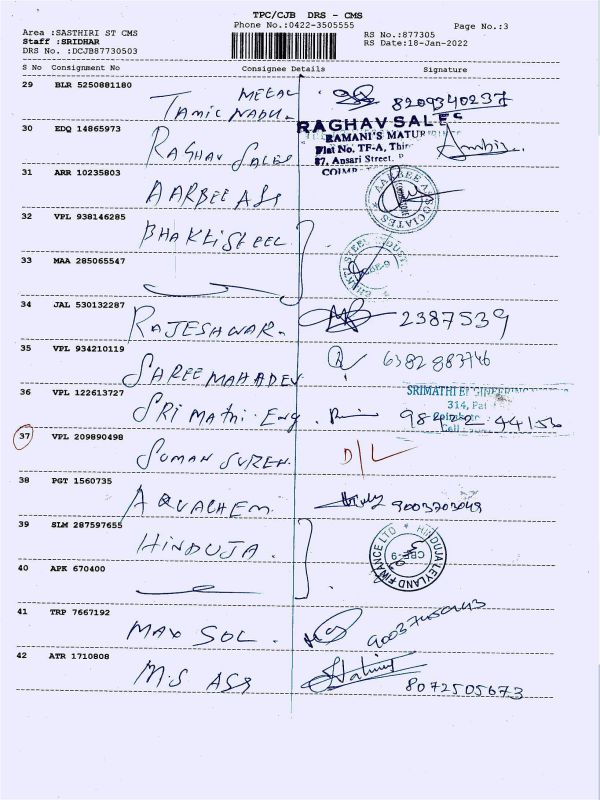 TPC/CJB DRS - CMS
Phone No.:0422-3505555
Page No.:3
Area :SASTHIRI ST CMS
Staff :SRIDHAR
DRS No. :DCJB87730503
RS No.:877305
RS Date:18-Jan-2022
S No Consignment No Consignee Details Signature
29 BLR 5250881180
METAL
TAMIL NADU. 8209340237
30 EDQ 14865973
RAGHAV SALES
RAGHAV SALES
RAMANI'S
Flat No. TF-A,
87, Ansari Street,
31 ARR 10235803
AARBEE ASS
AARBEE ASSOCIATES
32 VPL 938146285
BHAKTI STEEL
33 MAA 285065547
34 JAL 530132287
RAJESHWAR. 2387539
35 VPL 934210119
SHREE MAHADEV 6382883746
36 VPL 122613727
SRI Mathi Eng. 98422 44156
SRIMATHI ENGINEERING
314,
37 VPL 209890498
SUMAN SUREN. D/L
38 PGT 1560735
AQUACHEM. 9003703049
39 SLM 287597655
HINDUJA.
HINDUJA LEYLAND FINANCE LTD
CBE-9
40 APK 670400
41 TRP 7667192
MAX SOL.
42 ATR 1710808
M.S ASS 8072505673